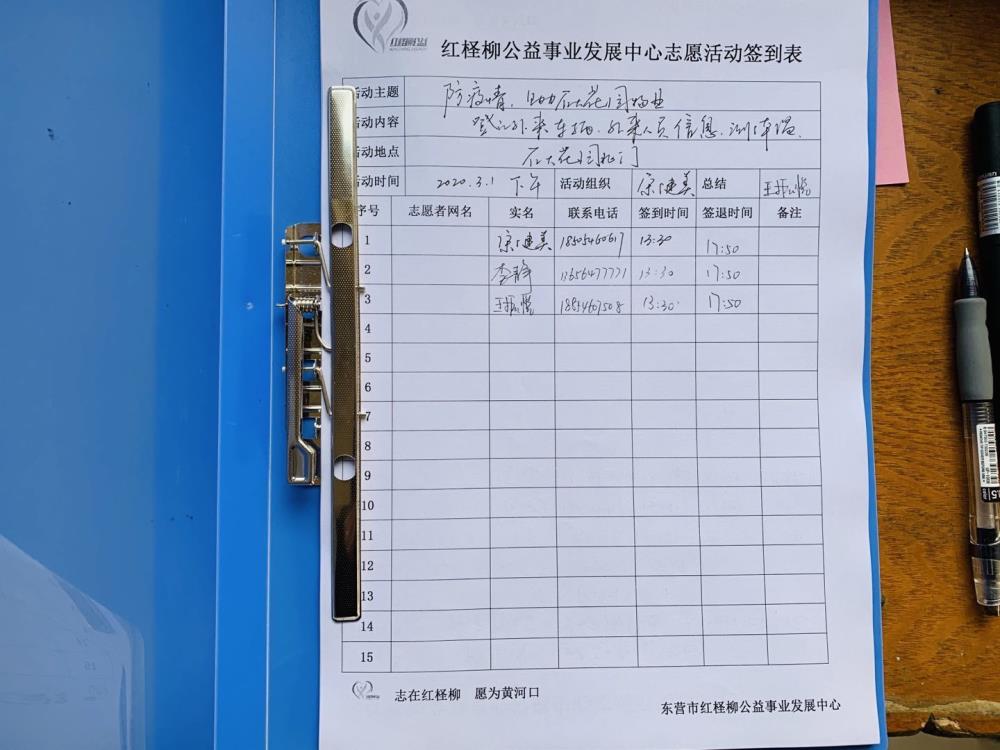 红柽柳公益事业发展中心志愿活动签到表
活动主题 防疫情,助石大花园物业
活动内容 登记外来车辆、外来人员信息、测体温
活动地点 石大花园北门
活动时间 2020.3.1 下午 活动组织 徐建美 总结 王振悦
序号 志愿者网名 实名 联系电话 签到时间 签退时间 备注
1 徐建美 18505460617 13:30 17:50
2 李静 13656477771 13:30 17:50
3 王振悦 13:30 17:50
4
5
6
7
8
9
10
11
12
13
14
15
志在红柽柳 愿为黄河口
东营市红柽柳公益事业发展中心